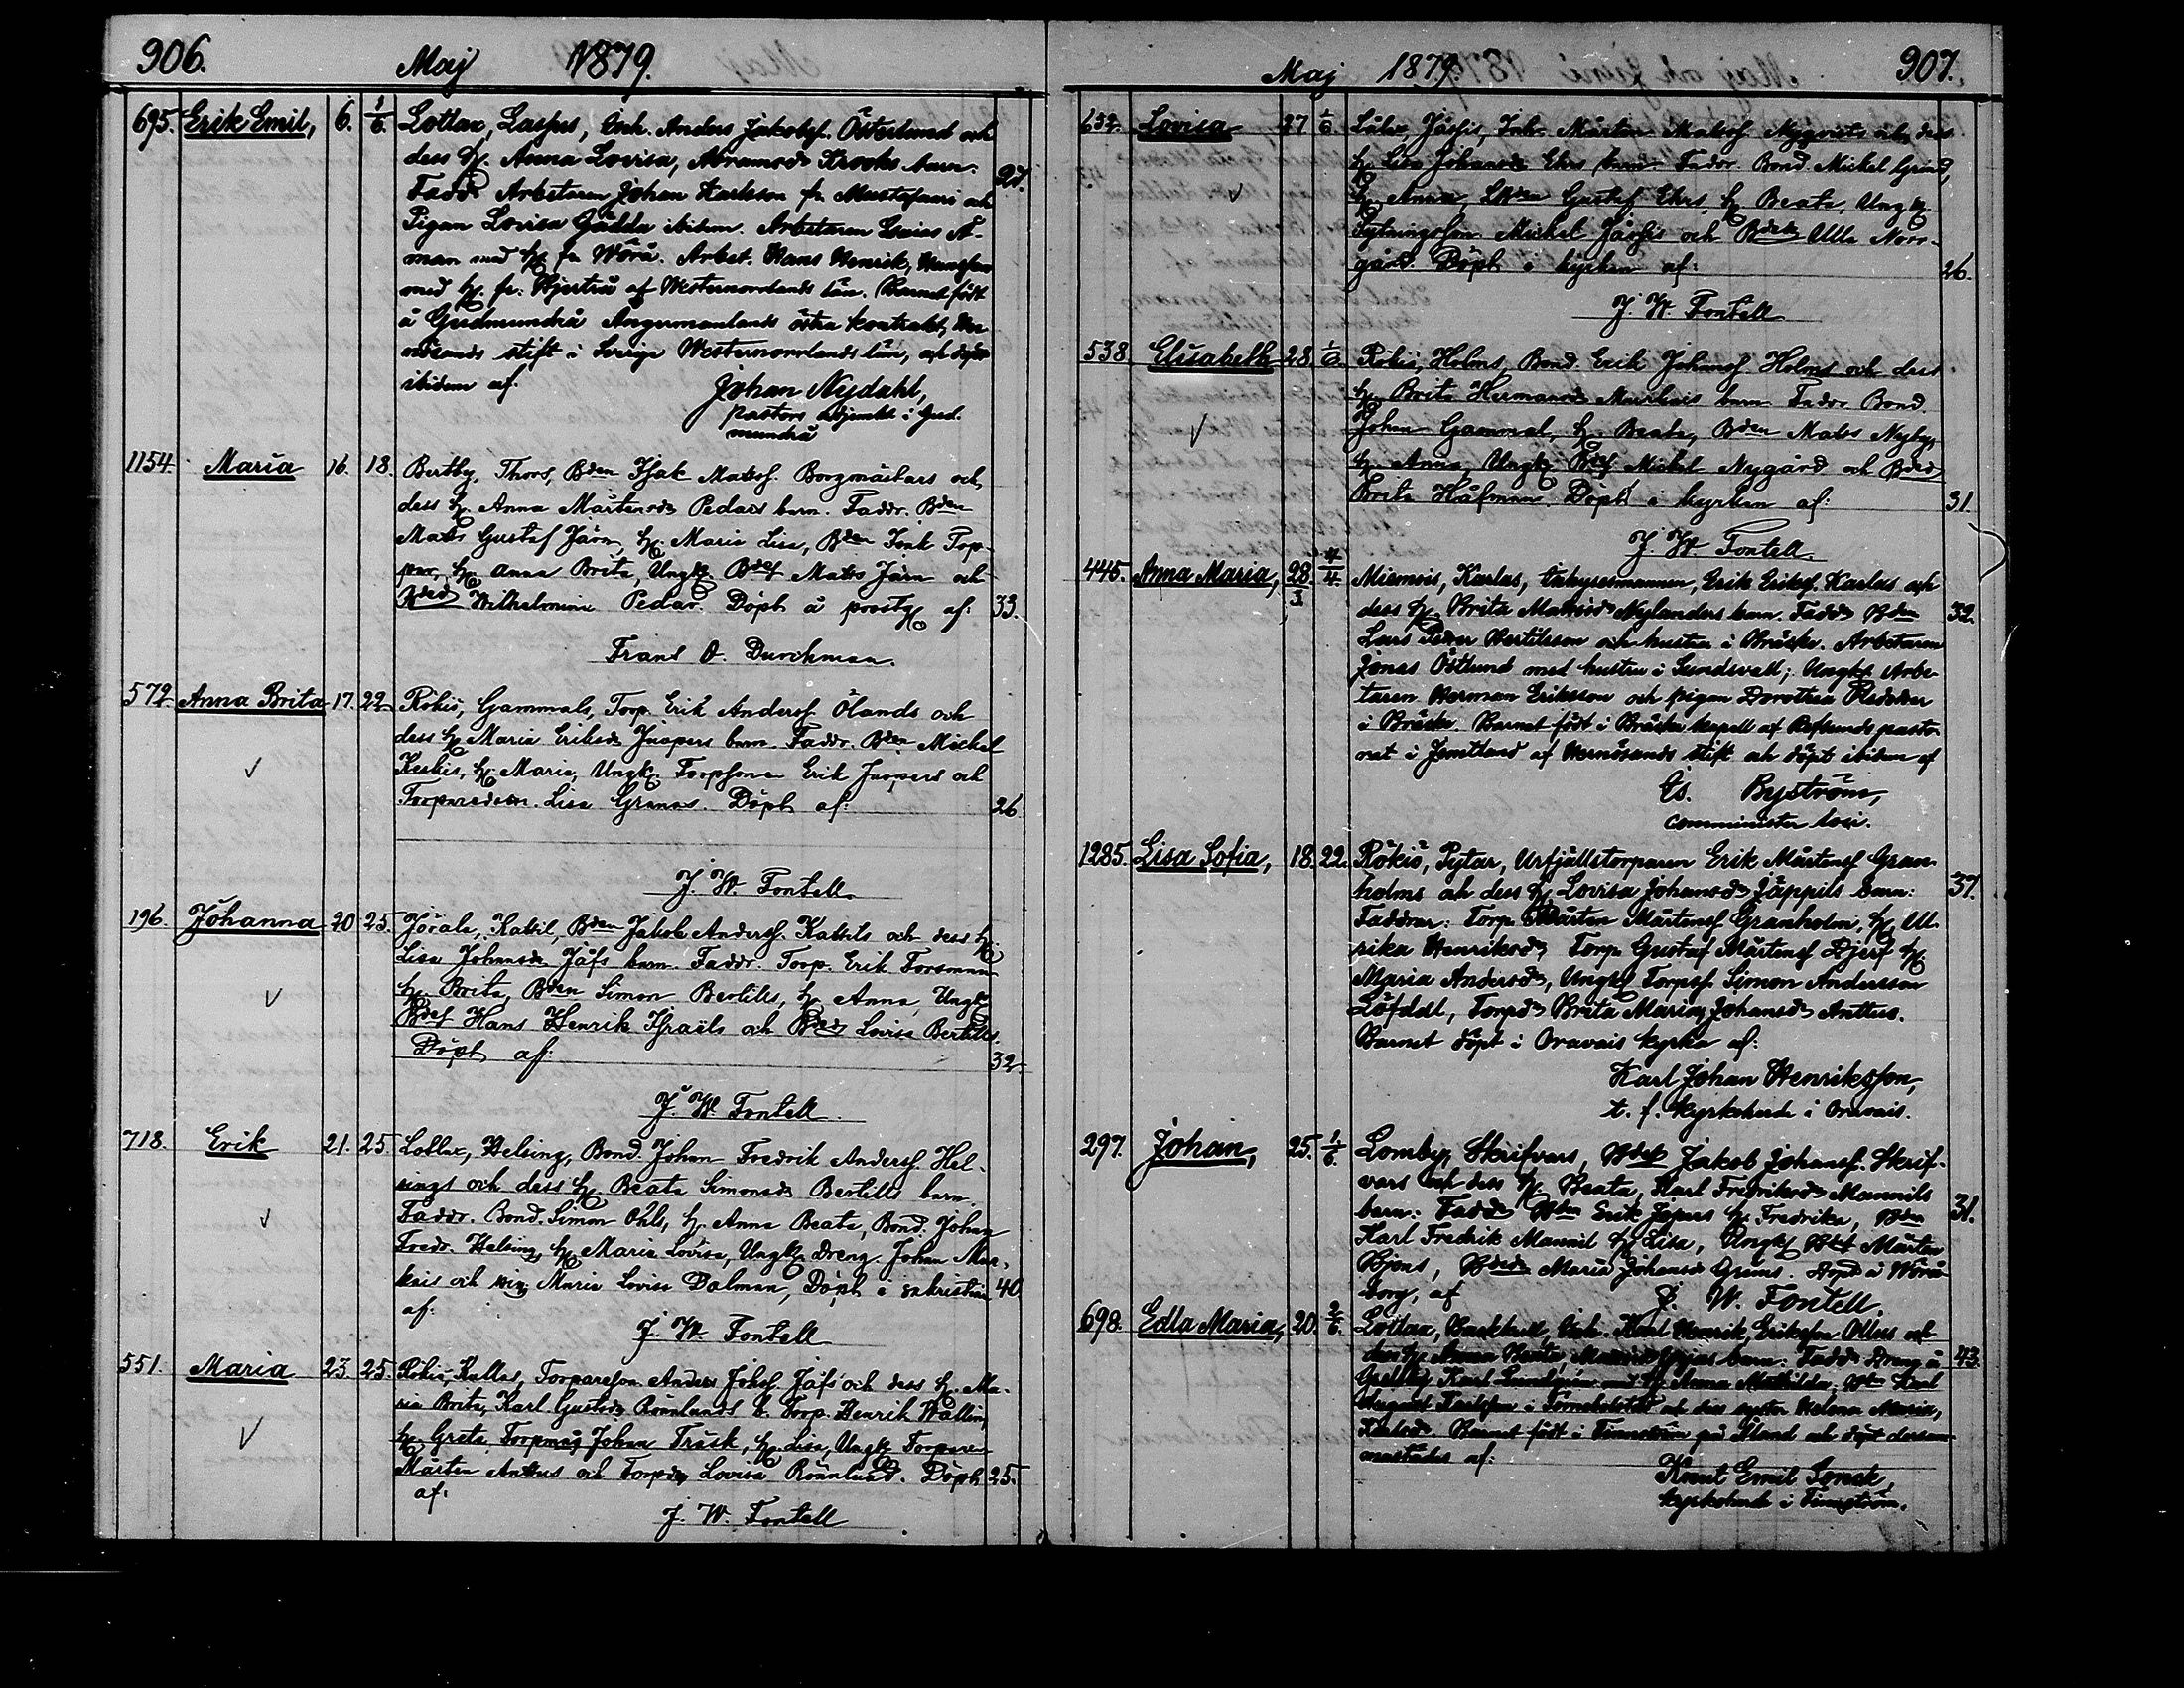 906. Maj 1879.
695. Erik Emil, 6. 1/6. Lottax, Laspes, Inh. Anders Jakobsf. Österlund och
dess H. Anna Lovisa, Abramsdr Krooks barn. 27.
Faddr Arbetaren Johan Karlsson fr. Mustasaari och
Pigan Lovisa Gädda ibidem. Arbetaren Esaias Å-
man med H. fr. Wörå. Arbet. Hans Henrik,
med H. fr. af Westernorrlands län. Barnet född
å Gudmundrå Angermanlands östra kontrakt, Her-
nösands stift i Sverige Westernorrlands län, och döpt
ibidem af. Johan Nydahl,
pastors adjunkt i Gud-
mundrå
1154. Maria 16. 18. Bertby, Thors, Bden Isak Matsf. Borgmästars och
dess H. Anna Mårtensdr Pedars barn. Faddr. Bden
Matts Gustaf Järn, H. Maria Lisa, Bden Isak Top-
par, H. Anna Brita, Ungk. Bdes Matts Järn och
Bded Wilhelmina Pedar. Döpt å prostg. af: 33.
Frans O. Durchman.
572. Anna Brita 17. 22. Rökiö, Gammals, Torp. Erik Andersf. Ölands och
dess H. Maria Eriksdr Juopers barn. Faddr. Bden Mickel
Keskis, H. Maria, Ungk. Torpsonen Erik Juopers och
Torparedotr. Lisa Granö. Döpt af: 26
J. W. Fontell.
196. Johanna 20 25. Jörala, Kattil, Bden Jakob Andersf. Kattils och dess H.
Lisa Johansdr Jäfs barn. Faddr. Torp. Erik Forsman
H. Brita, Bden Simon Bertills, H. Anna, Ungk.
Bdes Hans Henrik Israëls och Bded Lovisa Bertills.
Döpt af: 32
J. W. Fontell
718. Erik 21. 25. Lottax, Helsing, Bond. Johan Fredrik Andersf. Hel-
sings och dess H. Beata Simonsdr Bertills barn
Faddr. Bond. Simon Ohls, H. Anna Beata, Bond. Johan
Fredr. Helsing, H. Maria Lovisa, Ungk. Dreng. Johan Mar-
kais och pig. Maria Lovisa Dalman, Döpt i sakristian 40
af: J. W. Fontell
551. Maria 23. 25. Rökiö, Kallas, Torpareson Anders Johsf. Jäfs och dess H. Ma-
ria Brita, Karl Gustsdr Rönnlunds b. Torp. Henrik Wallin,
H. Greta, Torpmåg Johan Träsk, H. Lisa, Ungk. Torpare
Mårten Anttus och Torpdr Lovisa Rönnlund. Döpt 25.
af. J. W. Fontell
Maj 1879. 907.
Lovisa 27 1/6 Lålax, Jåfsis, Inh. Mårten Matsf. Nyqvists och dess
H. Lisa Johansdr Ehrs barn. Faddr. Bond. Mickel Grind,
H. Anna, Bden Gustaf Ehrs, H. Beata, Ungk.
Sytningsson Mickel Jåfsis och Bded Ulla Norr-
gård. Döpt i kyrkan af: 26.
J. W. Fontell
538. Elisabeth 28. 1/6. Rökiö, Holms, Bond. Erik Johansf. Holms och dess
H. Brita Hermansdr Murkais barn. Faddr. Bond.
Johan Gammal, H. Beata, Bden Matts Nyby,
H. Anna, Ungk. Bdes Mickel Nygård och Bded
Brita Håfman. Döpt i kyrkan af: 31.
J. W. Fontell.
445. Anna Maria, 28/3 4/4. Miemois, Karlas, Erik Eriksf. Karlas och
dess H. Brita Mattsdr Nylanders barn. Faddr Bden 32.
Lars Peder Bertilsson och hustru i Bräcke. Arbetaren
Jonas Östlund med hustru i Sundsvall; Ungk. Arbe-
taren Herman Eriksson och pigan Dorothea
i Bräcke. Barnet född i Bräcke kapell af Refsunds pasto-
rat i Jemtland af Hernösands stift och döpt ibidem af
Es. Byström,
comminister loci.
1285. Lisa Sofia, 18. 22. Rökiö, Pytar, Urfjällstorparen Erik Mårtensf Gran-
holms och dess H. Lovisa Johansdr Jäppils barn: 37.
Faddrar: Torp. Mårten Mårtensf Granholm, H. Ul-
rika Henriksdr, Torp. Gustaf Mårtensf Djerf H.
Maria Andersdr, Ungk. Torpsf. Simon Andersson
Löfdal, Torpdr Brita Maria Johansdr Anttus.
Barnet döpt i Oravais kyrka af:
Karl Johan Henriksson,
t. f. kyrkoherde i Oravais.
297. Johan, 25. 1/6. Lomby, Skrifvars, Bdes Jakob Johansf. Skrif-
vars och dess H. Beata, Karl Fredriksdr Mannils
barn: Faddr Bden Erik H. Fredrika, Bden 31.
Karl Fredrik Mannil H. Lisa, Ungk. Bdes Mårten
Bjons, Bdedr Maria Johansdr Grims. Döpt å Wörå
borg, af J. W. Fontell.
698. Edla Maria, 20. 2/6. Lottax, Backkull, Inh. Karl Henrik Eriksson Ollus och
dess H. Anna barn: Faddr Dreng å 43.
Karl med H. Anna Mathilda, Karl
August Karlsson i och dess syster Helena Maria,
Karlsdr. Barnet född i Finnström på Åland och döpt dersam-
mastädes af:
Knut Emil Sonck,
kyrkoherde i Finnström.